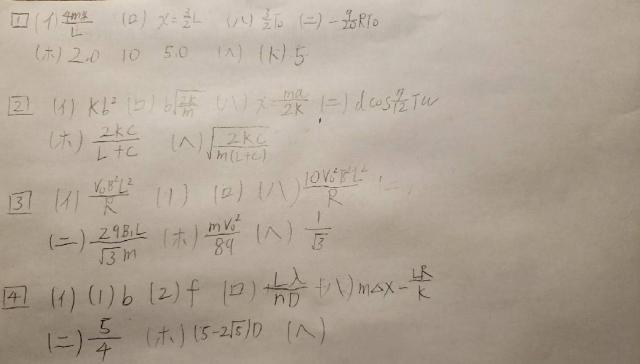 1 (イ) 4mg/L (ロ) x=3/2L (ハ) 3/2T₀ (ニ) -9/20RT₀
(ホ) 2.0 10 5.0 (ヘ) (k) 5
2 (イ) Kb² (ロ) b√(2k/m) (ハ) x=ma/2K (ニ) d cos 7/12 πω
(ホ) 2KC/(L+C) (ヘ) √(2KC/m(L+C))
3 (イ) V₀B²L²/R (1) (ロ) (ハ) 10V₀²B²L²/R
(ニ) 2qB₁L/√3m (ホ) mV₀²/8q (ヘ) 1/√3
4 (イ) (1) b (2) f (ロ) Lλ/nD (ハ) mΔx-LR/K
(ニ) 5/4 (ホ) (5-2√5)D (ヘ)